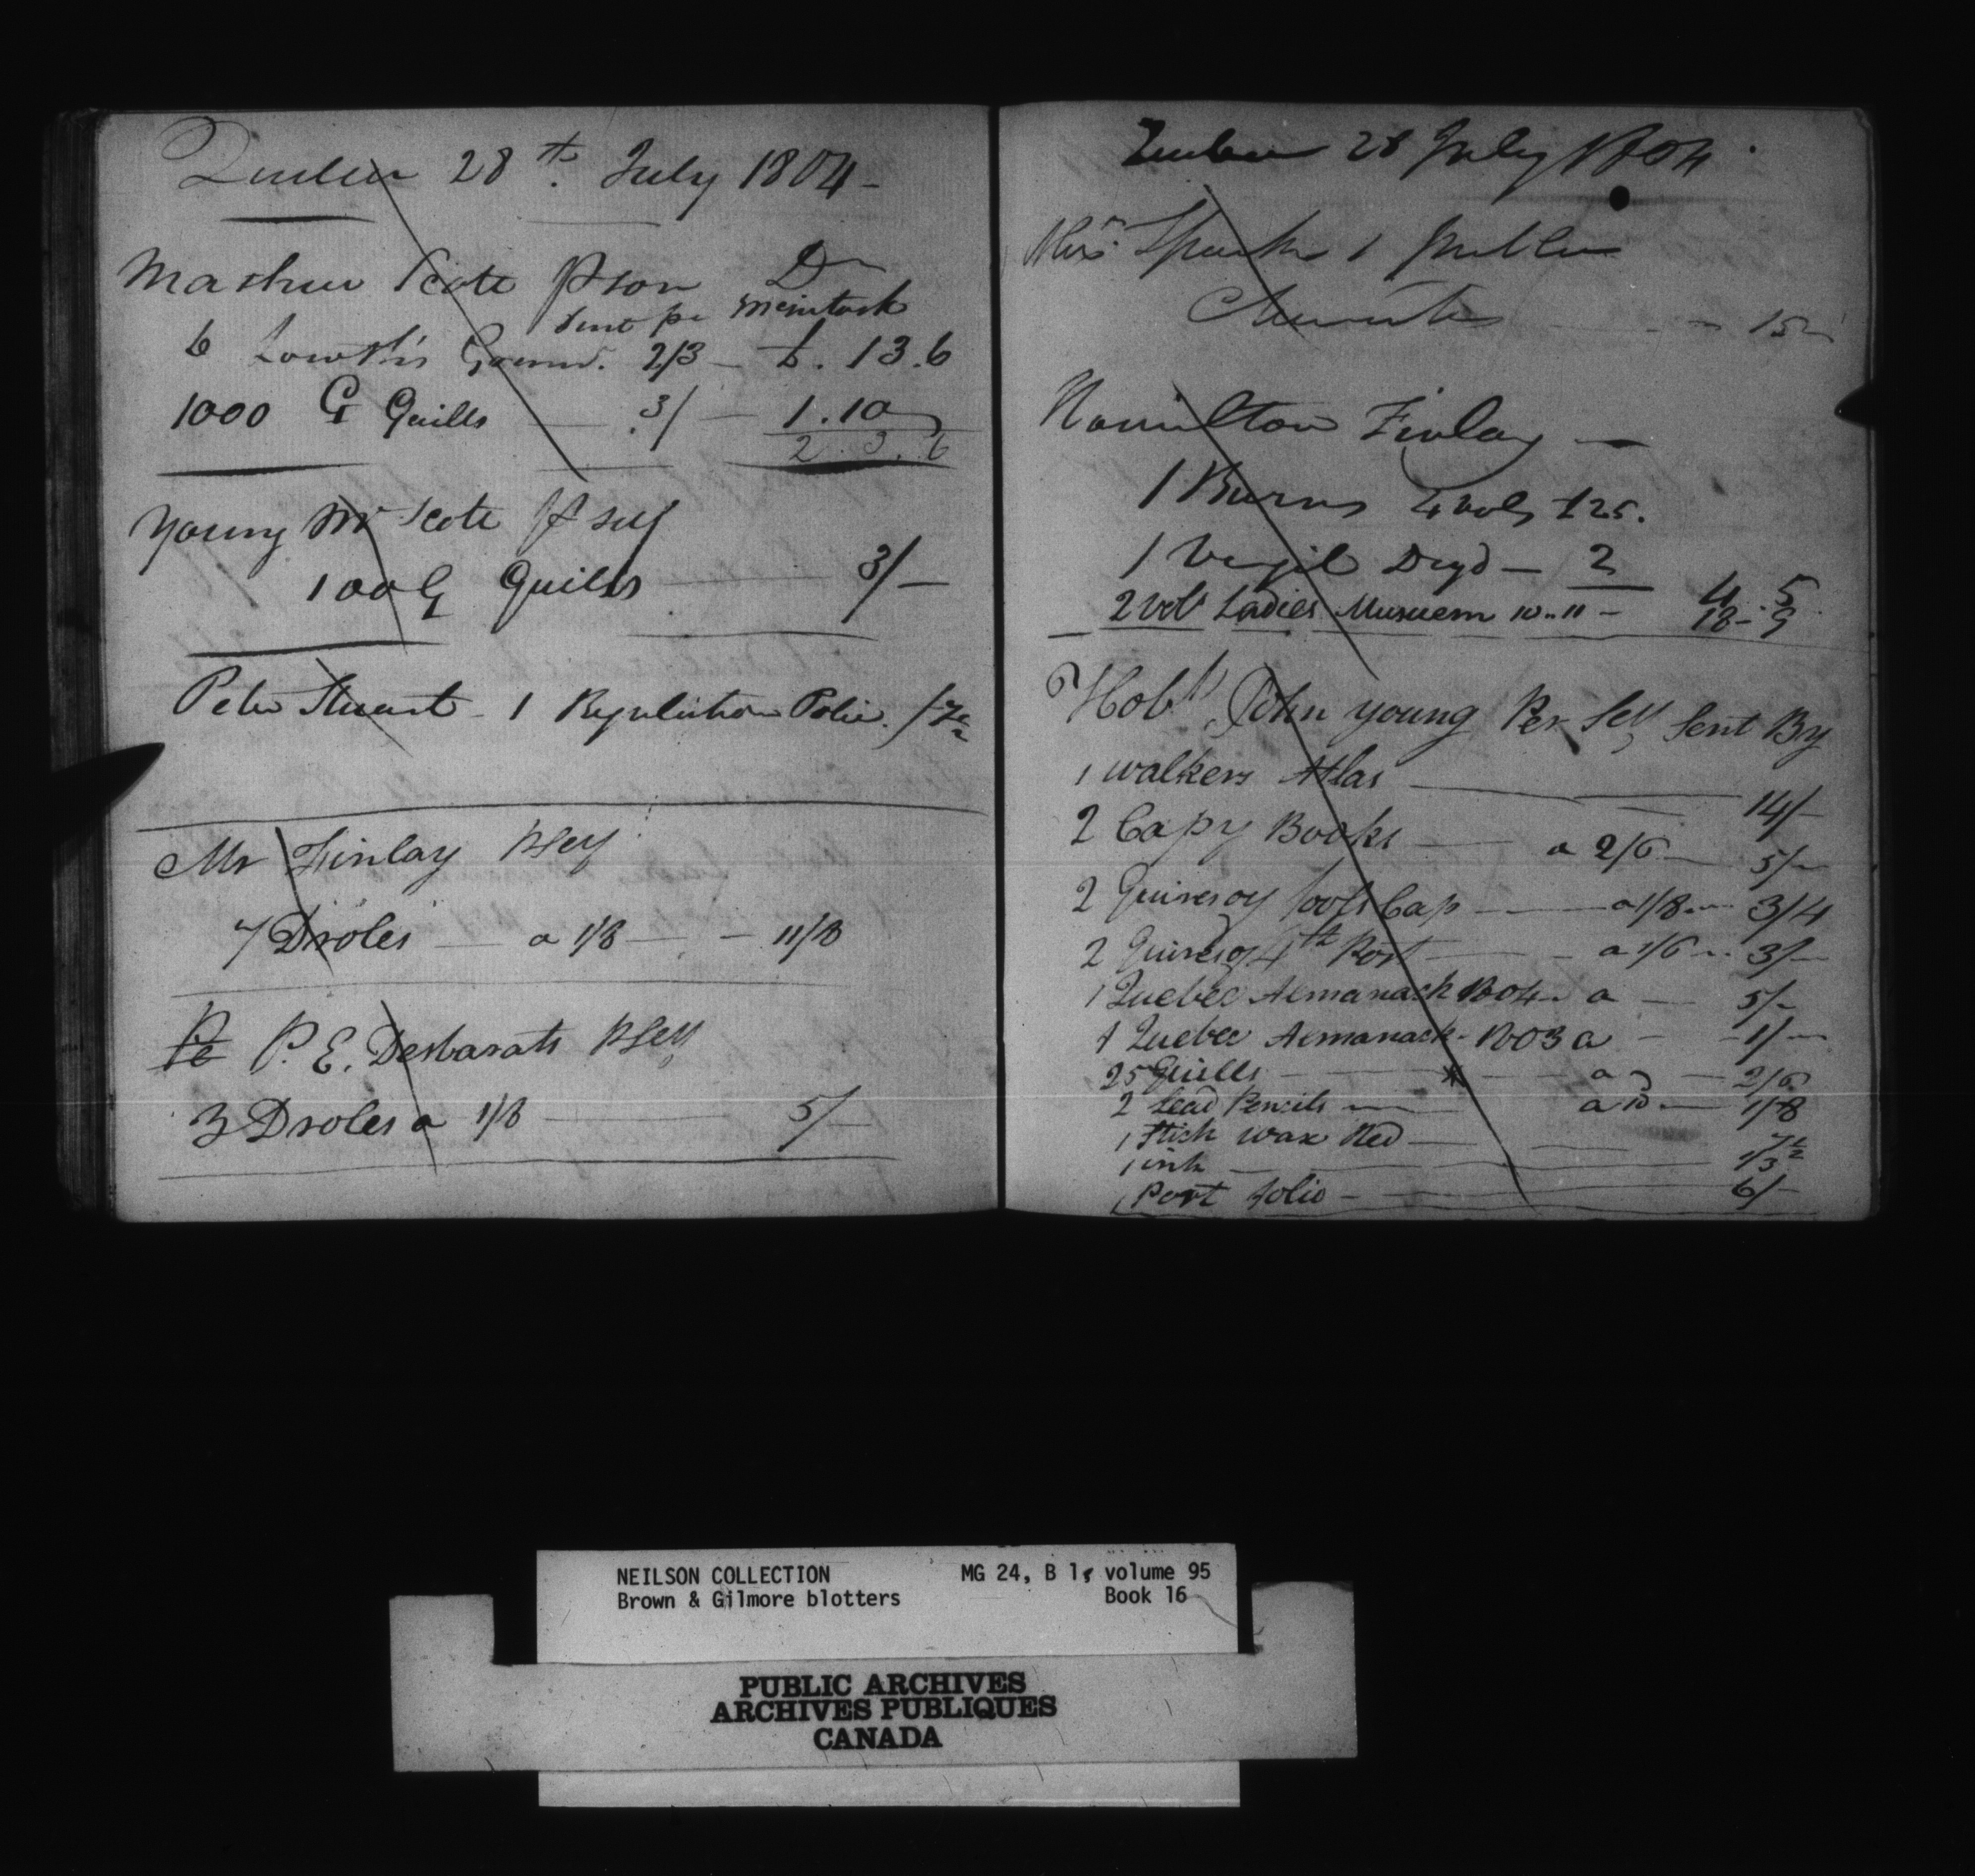 Quebec 28th. July 1804 -
Mathew Scote pson Dr
sent pr Mcintosh
6 Lowth's Gramr. 2/3 - £. 13.6
1000 G Quills 3/ - 1.10
2. 3. 6
Young Mr Scote p self
100 G Quills 3/-
Peter Stuart - 1 Regulation Police. /7½
Mr Finlay pself
7 Droles a 1/8 - 11/8
Pe P. E. Desbarats pself
3 Droles a 1/8 5/-
Quebec 28 July 1804.
Mrs. Spark 1
15
Hamilton Finlay -
1 Burns 4 vols £25.
1 Virgil Dryd - 2
4. 5
2 vols Ladies Musuem 10..11 - 18-9
Hobl John young Per Self Sent By
1 walkers Atlas 14/-
2 Capy Books a 2/6 5/-
2 Quires of fools Cap a 1/8 3/4
2 Quires of 4th Post a 1/6 3/-
1 Quebec Almanack 1804 - a 5/-
1 Quebec Almanack - 1803 a - 1/-
25 Quills a 2/6
2 Lead Pencils a 10 1/8
1 Stick wax Red 7½
1 ink 1/3
1 Port folio - 6/-
NEILSON COLLECTION MG 24, B 1, volume 95
Brown & Gilmore blotters Book 16
PUBLIC ARCHIVES
ARCHIVES PUBLIQUES
CANADA